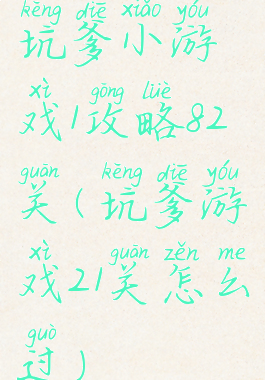 kēng diē xiǎo yóu
坑爹小游
xì gōng lüè
戏1攻略82
guān kēng diē yóu
关(坑爹游
xì guān zěn me
戏21关怎么
guò
过)